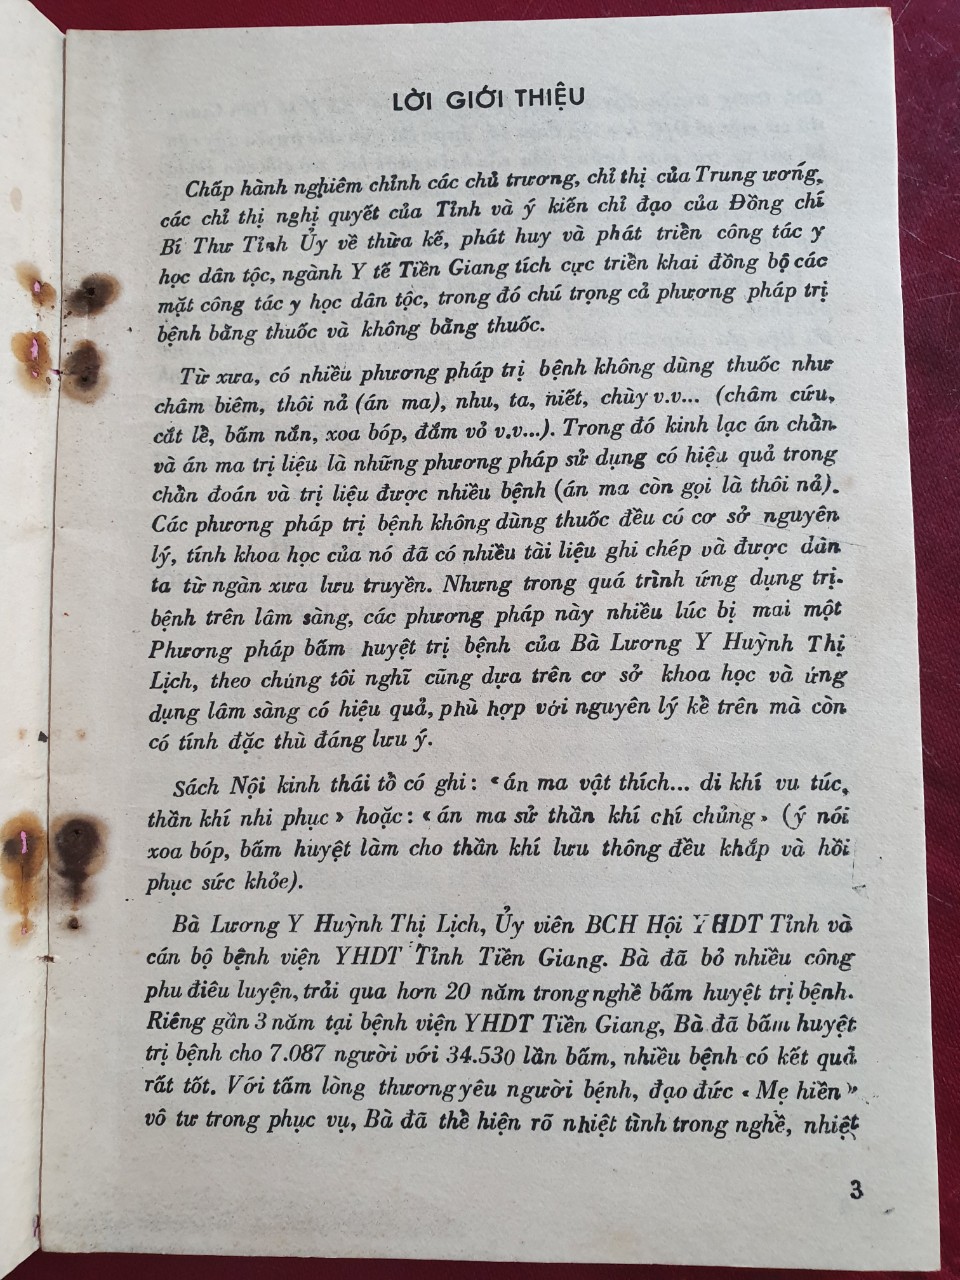 LỜI GIỚI THIỆU
Chấp hành nghiêm chỉnh các chủ trương, chỉ thị của Trung ương,
các chỉ thị nghị quyết của Tỉnh và ý kiến chỉ đạo của Đồng chí
Bí Thư Tỉnh Ủy về thừa kế, phát huy và phát triển công tác y
học dân tộc, ngành Y tế Tiền Giang tích cực triển khai đồng bộ các
mặt công tác y học dân tộc, trong đó chú trọng cả phương pháp trị
bệnh bằng thuốc và không bằng thuốc.
Từ xưa, có nhiều phương pháp trị bệnh không dùng thuốc như
châm biêm, thôi nả (án ma), nhu, ta, niết, chùy v.v... (châm cứu,
cắt lể, bấm nắn, xoa bóp, đấm vỏ v.v...). Trong đó kinh lạc án chẩn
và án ma trị liệu là những phương pháp sử dụng có hiệu quả trong
chẩn đoán và trị liệu được nhiều bệnh (án ma còn gọi là thôi nả).
Các phương pháp trị bệnh không dùng thuốc đều có cơ sở nguyên
lý, tính khoa học của nó đã có nhiều tài liệu ghi chép và được dân
ta từ ngàn xưa lưu truyền. Nhưng trong quá trình ứng dụng trị
bệnh trên lâm sàng, các phương pháp này nhiều lúc bị mai một
Phương pháp bấm huyệt trị bệnh của Bà Lương Y Huỳnh Thị
Lịch, theo chúng tôi nghĩ cũng dựa trên cơ sở khoa học và ứng
dụng lâm sàng có hiệu quả, phù hợp với nguyên lý kể trên mà còn
có tính đặc thù đáng lưu ý.
Sách Nội kinh thái tố có ghi: «án ma vật thích... di khí vu túc,
thần khí nhi phục» hoặc: «án ma sử thần khí chí chủng» (ý nói
xoa bóp, bấm huyệt làm cho thần khí lưu thông đều khắp và hồi
phục sức khỏe).
Bà Lương Y Huỳnh Thị Lịch, Ủy viên BCH Hội YHDT Tỉnh và
cán bộ bệnh viện YHDT Tỉnh Tiền Giang. Bà đã bỏ nhiều công
phu điêu luyện, trải qua hơn 20 năm trong nghề bấm huyệt trị bệnh.
Riêng gần 3 năm tại bệnh viện YHDT Tiền Giang, Bà đã bấm huyệt
trị bệnh cho 7.087 người với 34.530 lần bấm, nhiều bệnh có kết quả
rất tốt. Với tấm lòng thương yêu người bệnh, đạo đức «Mẹ hiền»
vô tư trong phục vụ, Bà đã thể hiện rõ nhiệt tình trong nghề, nhiệt
3